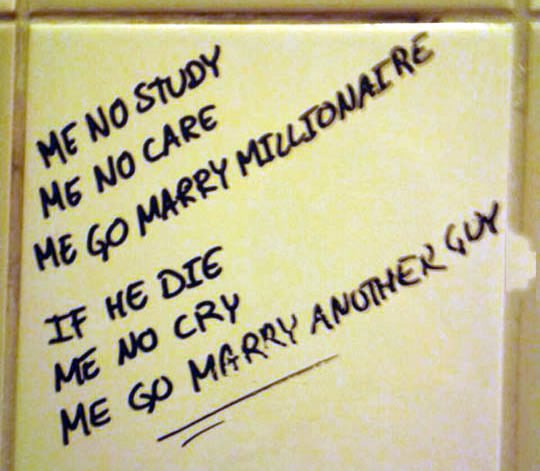 ME NO STUDY
ME NO CARE
ME GO MARRY MILLIONAIRE
IF HE DIE
ME NO CRY
ME GO MARRY ANOTHER GUY